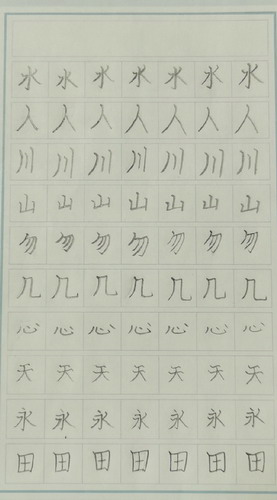 水水水水水水水
人人人人人人人
川川川川川川川
山山山山山山山
勿勿勿勿勿勿勿
几几几几几几几
心心心心心心心
天天天天天天天
永永永永永永永
田田田田田田田